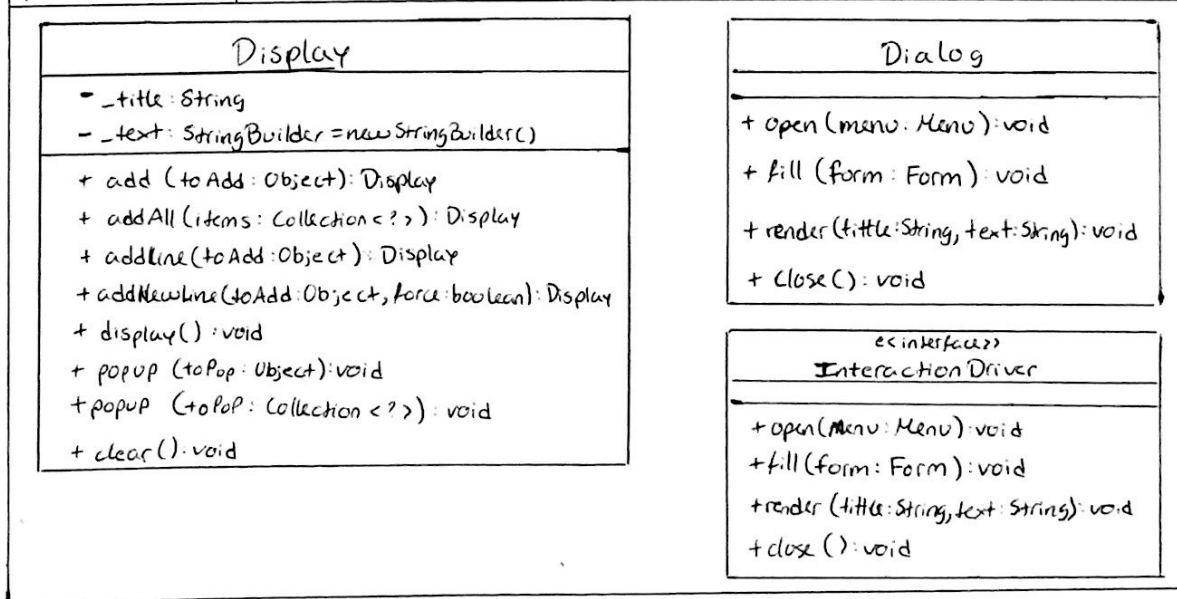 Display
- _title: String
- _text: StringBuilder = new StringBuilder()
+ add (toAdd: Object): Display
+ addAll (items: Collection<?>): Display
+ addLine (toAdd: Object): Display
+ addNewLine (toAdd: Object, force: boolean): Display
+ display(): void
+ popup (toPop: Object): void
+ popup (toPop: Collection <?>): void
+ clear(): void
Dialog
+ open (menu: Menu): void
+ fill (form: Form): void
+ render (tittle: String, text: String): void
+ close(): void
<<interface>>
InteractionDriver
+ open (menu: Menu): void
+ fill (form: Form): void
+ render (tittle: String, text: String): void
+ close (): void